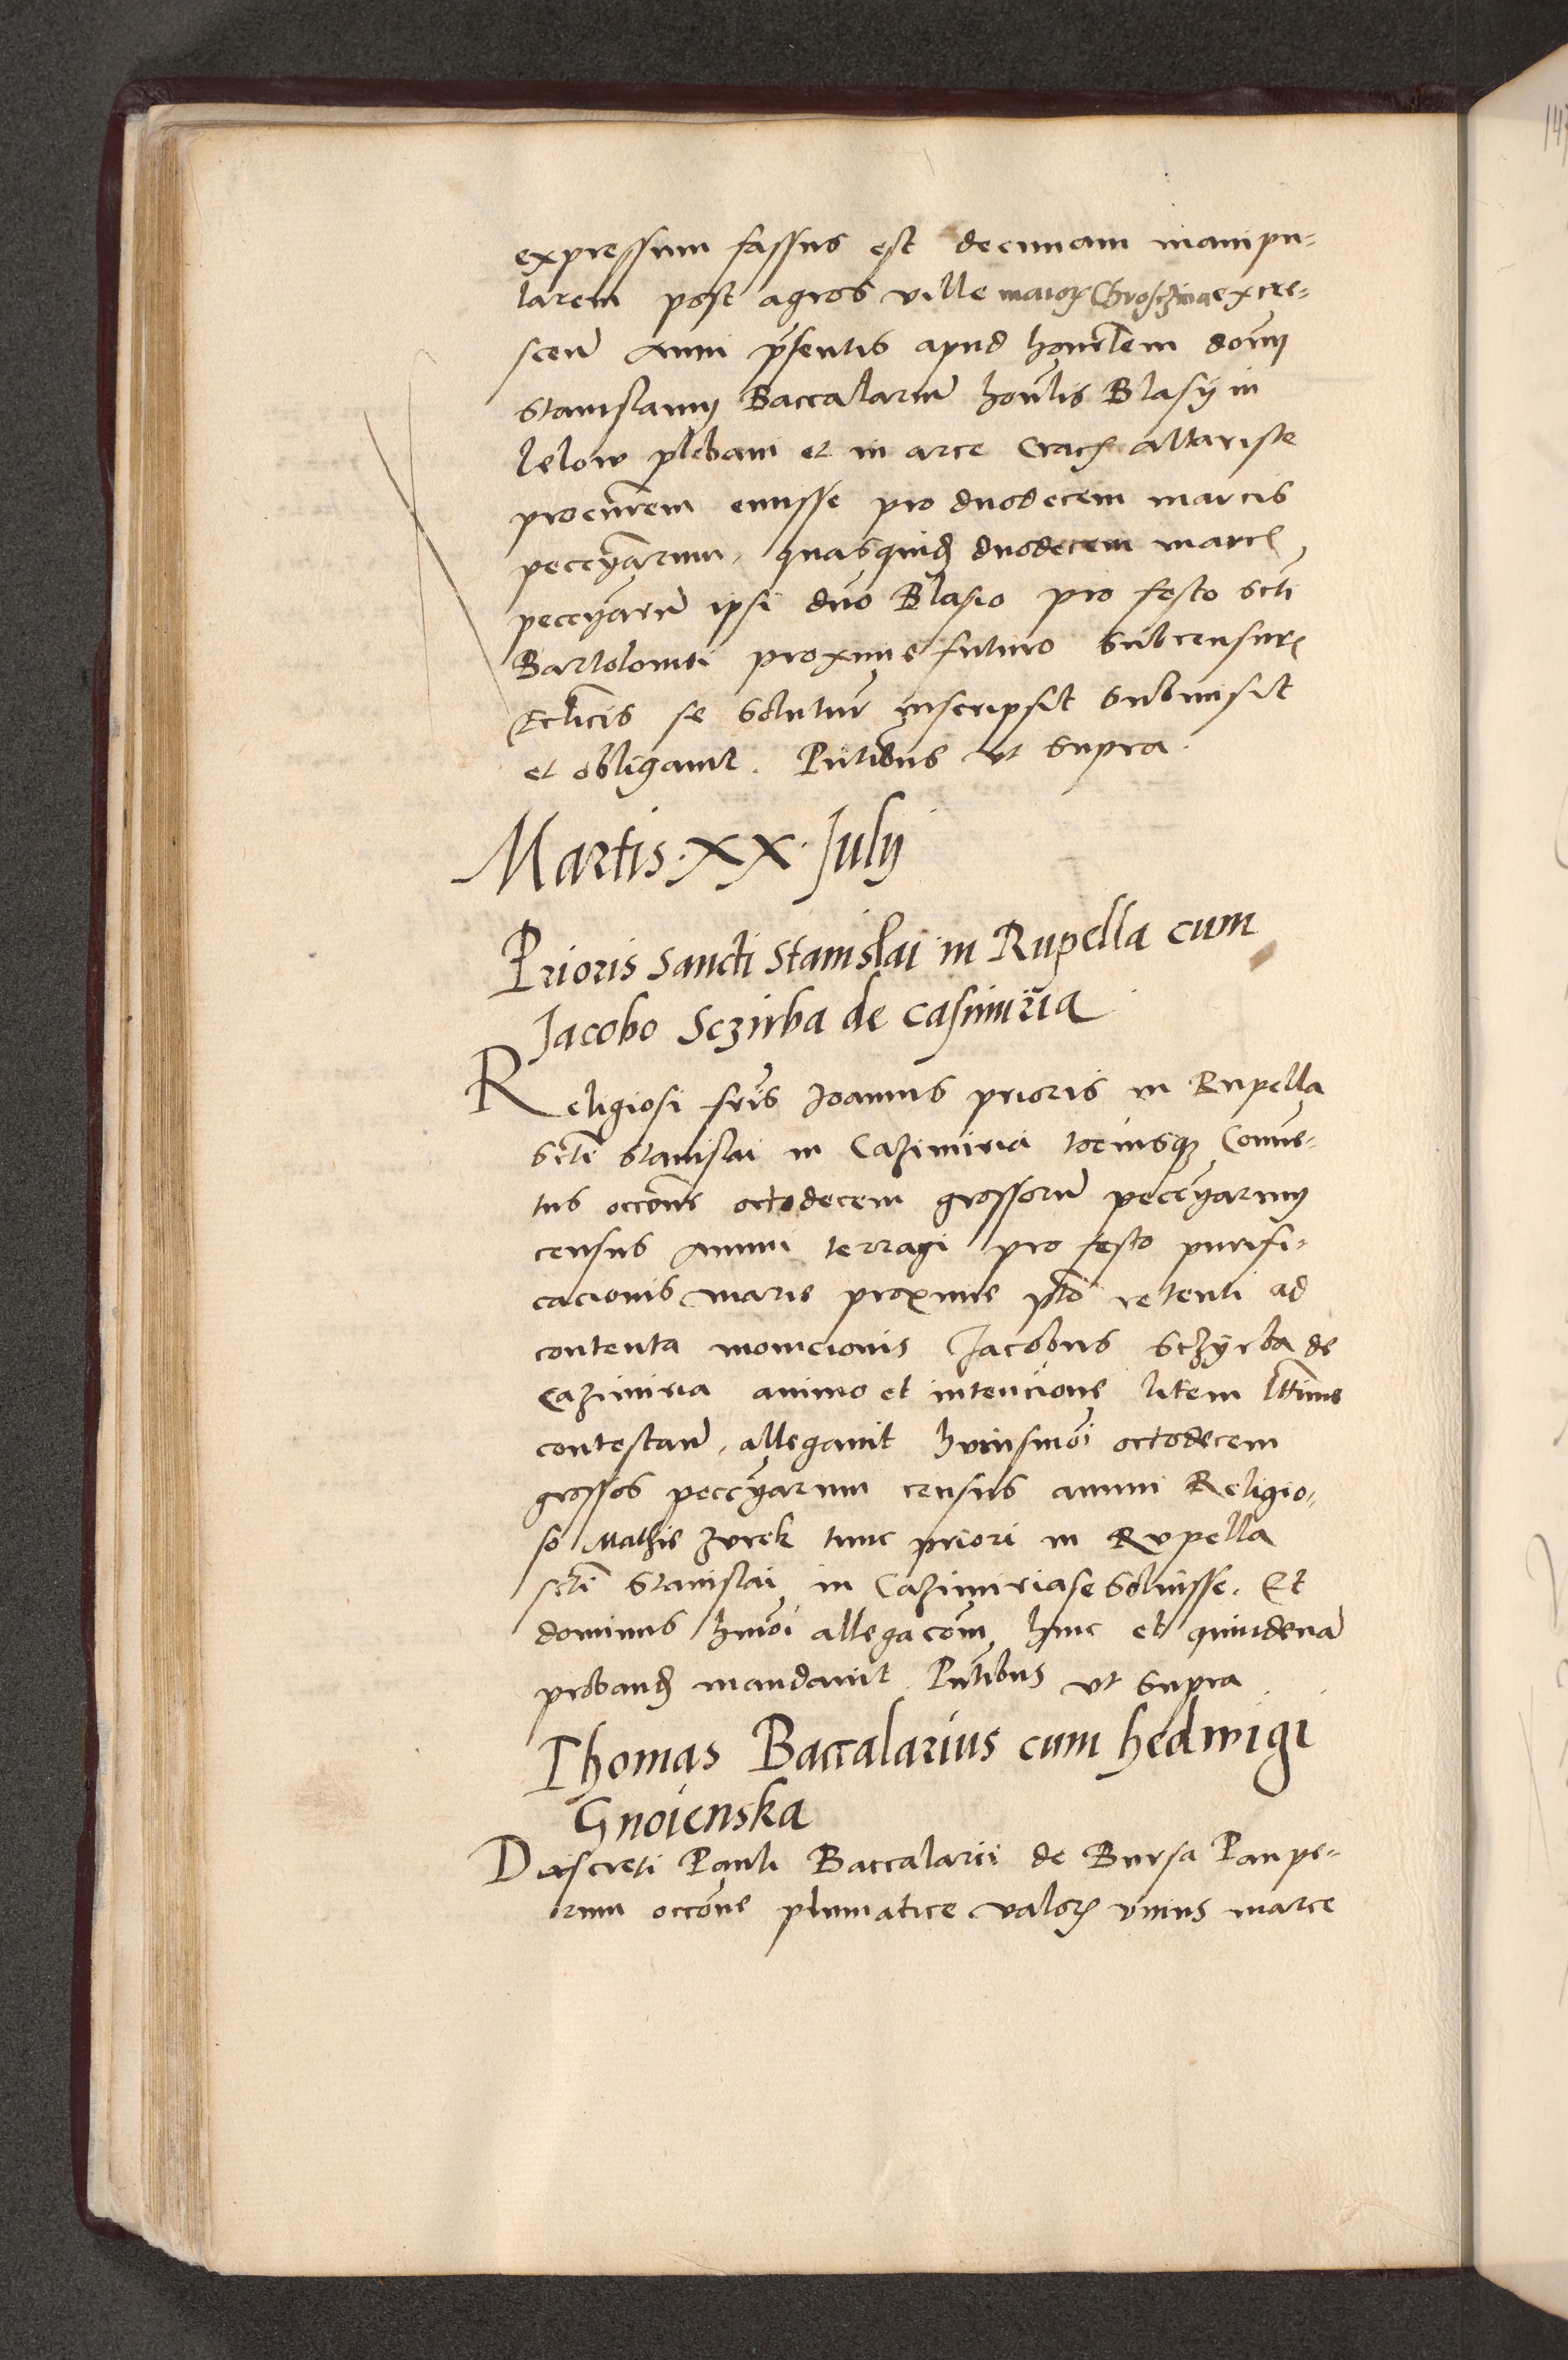 expressum fassus est decimam manipu=
larem post agros ville maior Chroszna excre=
scen̄ Anni pn̄sentis apud honorlem dom̄
Stanislaum Baccalariu̅ hon̄lis Blasij in
lelow plebani et in arce Crac altariste
procur̄em emisse pro duodecem marcis
peccy̅arum, quasquid duodecem marc
peccy̅aru̅ ipsi dn̄o Blasio pro festo scti
Bartolomei proxime futuro Sub censur
Ecl̄icis se Solutur̄ inscripsit Submisit
et obligauit. Pn̄tibus vt supra.
Martis · XX · July
Prioris Sancti Stanislai in Rupella cum
Jacobo Sczirba de casimiria
Religiosi fr̄is Joannis prioris in Rupella
scti Stanislai in Cazimiria tociusq Conue=
tus occōne octodecem grossoru̅ peccy̅arum
census Annui terragi pro festo purifi=
cacionis marie proxime pto retenti ad
contenta monicionis Jacobus Sczyrba de
Cazimiria animo et intencione litem lttime
contestan̄, allegauit huiusmōi octodecem
grossos peccy̅arum census annui Religio=
so Mathie zurek tunc priori in Rupella
scti Stanislai in Cazimiria se Soluisse. Et
dominus hmōi allegacōm hinc et quindena̅
proband mandauit. Pn̄tibus vt Supra.
Thomas Baccalarius cum hedwigi
Gnoienska
Discreti Pauli Baccalarii de Bursa Paupe=
rum occōne plumatice valor vnius marce